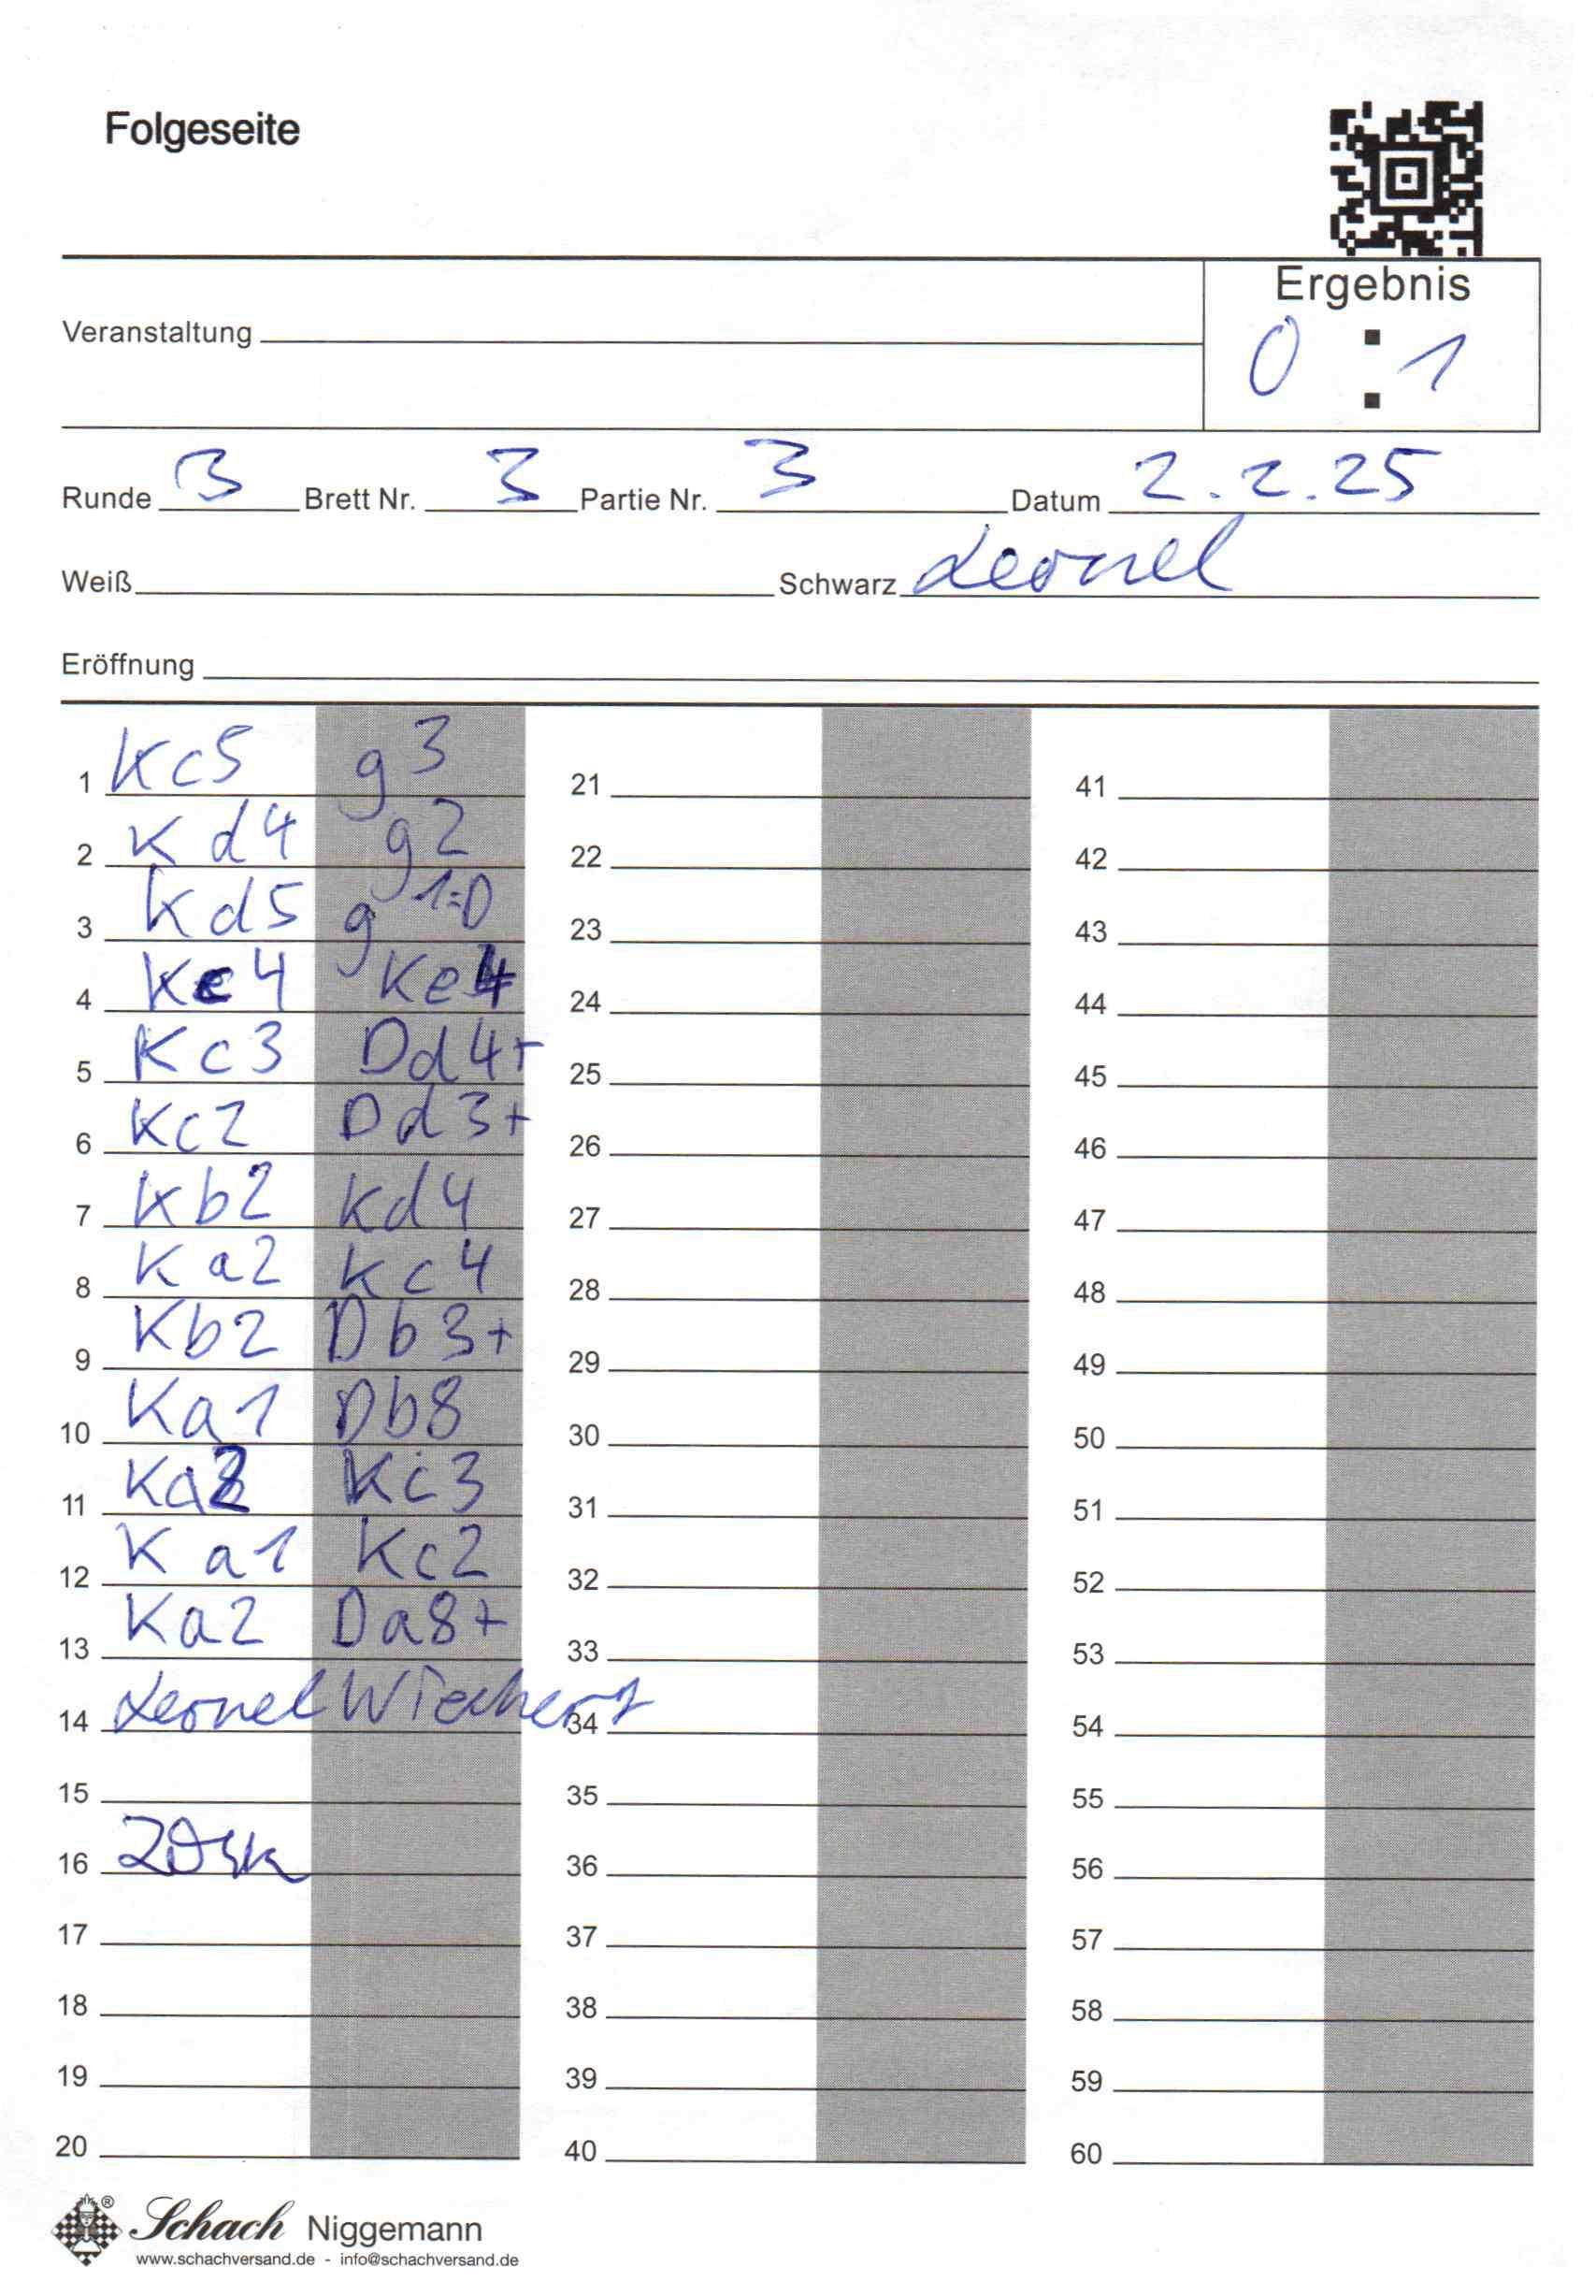 Folgeseite
Ergebnis
Veranstaltung
0 : 1
Runde 3 Brett Nr. 3 Partie Nr. 3 Datum 2.2.25
Weiß Schwarz Leonel
Eröffnung
1 Kc5 g3 21 41
2 Kd4 g2 22 42
3 Kd5 g1=D 23 43
4 Kc4 Ke4 24 44
5 Kc3 Dd4+ 25 45
6 Kc2 Dd3+ 26 46
7 Kb2 Kd4 27 47
8 Ka2 Kc4 28 48
9 Kb2 Db3+ 29 49
10 Ka1 Db8 30 50
11 Ka2 Kc3 31 51
12 Ka1 Kc2 32 52
13 Ka2 Da8+ 33 53
14 Leonel Wiechert 34 54
15 35 55
16 36 56
17 37 57
18 38 58
19 39 59
20 40 60
Schach Niggemann ®
www.schachversand.de - info@schachversand.de